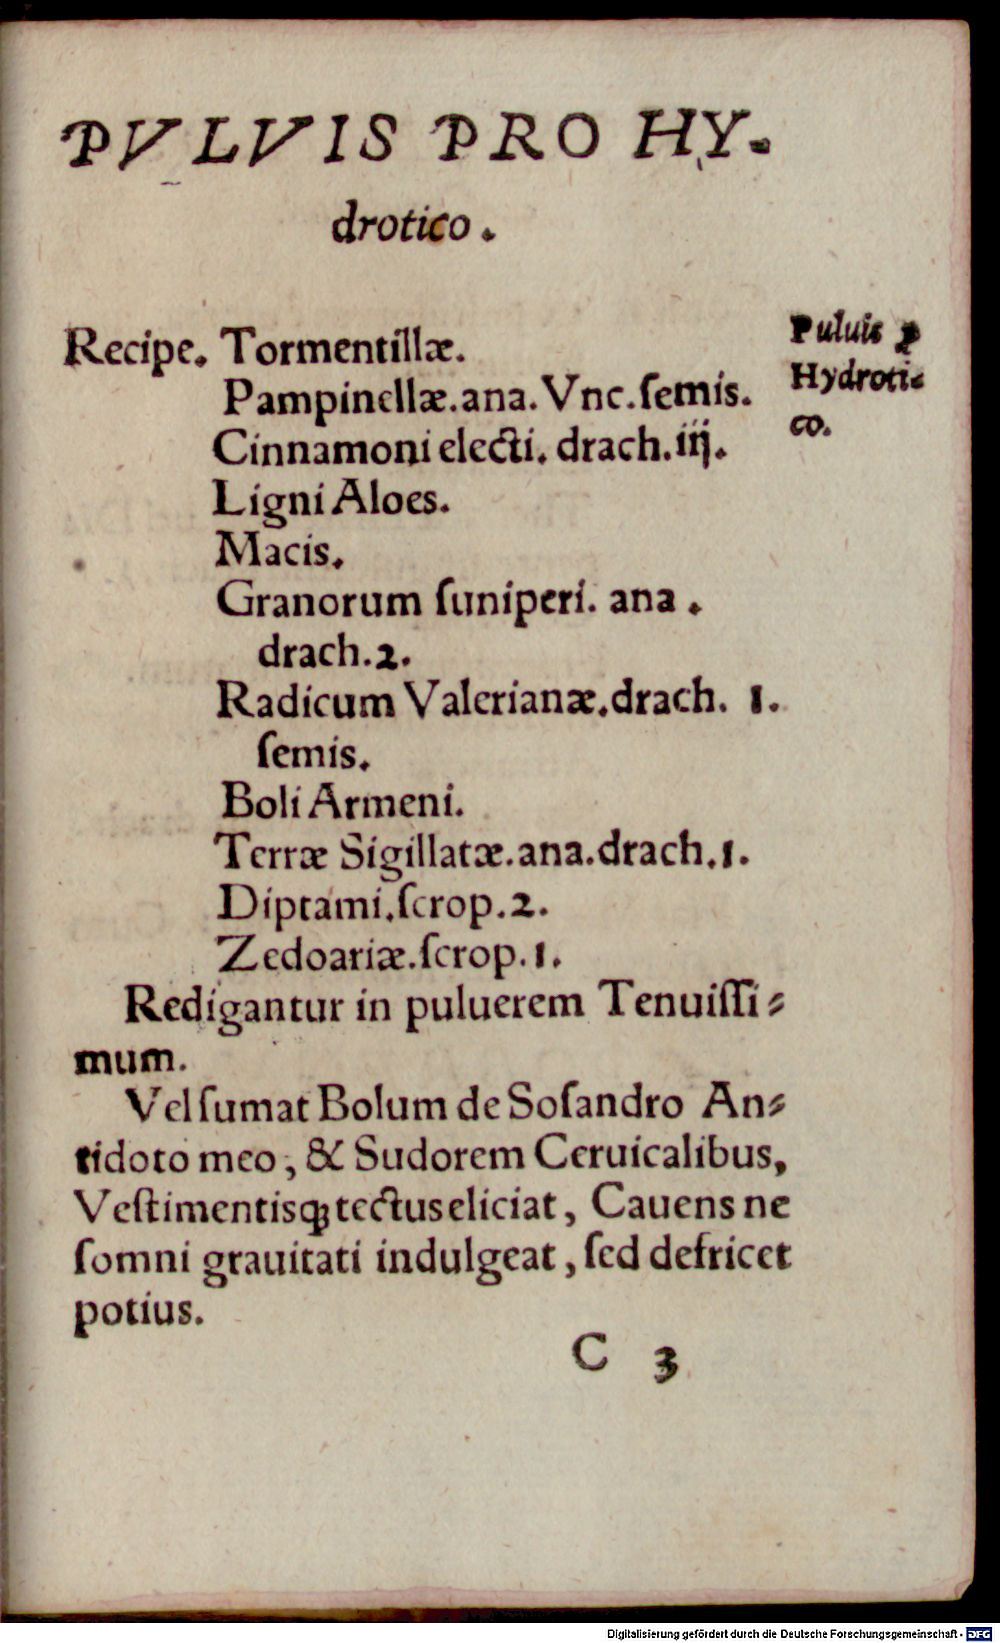 PVLVIS PRO HY-
drotico.
Recipe. Tormentillæ.
Pampinellæ.ana. Vnc.ſemis.
Cinnamoni electi. drach.iij.
Ligni Aloes.
Macis.
Granorum ſuniperi. ana.
drach.2.
Radicum Valerianæ.drach. 1.
ſemis.
Boli Armeni.
Terræ Sigillatæ.ana.drach.1.
Diptami.ſcrop.2.
Zedoariæ.ſcrop.1.
Redigantur in puluerem Tenuiſſi⸗
mum.
Vel ſumat Bolum de Soſandro An⸗
tidoto meo, & Sudorem Ceruicalibus,
Veſtimentisqꝫ tectus eliciat, Cauens ne
ſomni grauitati indulgeat, ſed defricet
potius.
C 3
Puluis ꝓ
Hydroti⸗
co.
Digitalisierung gefördert durch die Deutsche Forschungsgemeinschaft - DFG